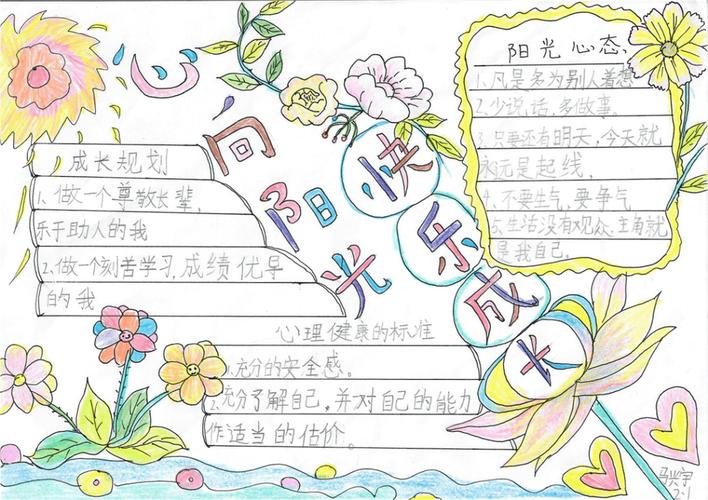 心向阳光
快乐成长
成长规划
1、做一个尊敬长辈,
乐于助人的我
2、做一个刻苦学习,成绩优导
的我
阳光心态、
1、凡是多为别人着想
2、少说话,多做事
3、只要还有明天,今天就
永远是起线,
4、不要生气,要争气
5、生活没有观众,主角就
是我自己,
心理健康的标准
1.充分的安全感。
2.充分了解自己,并对自己的能力
作适当的估价。
2.1